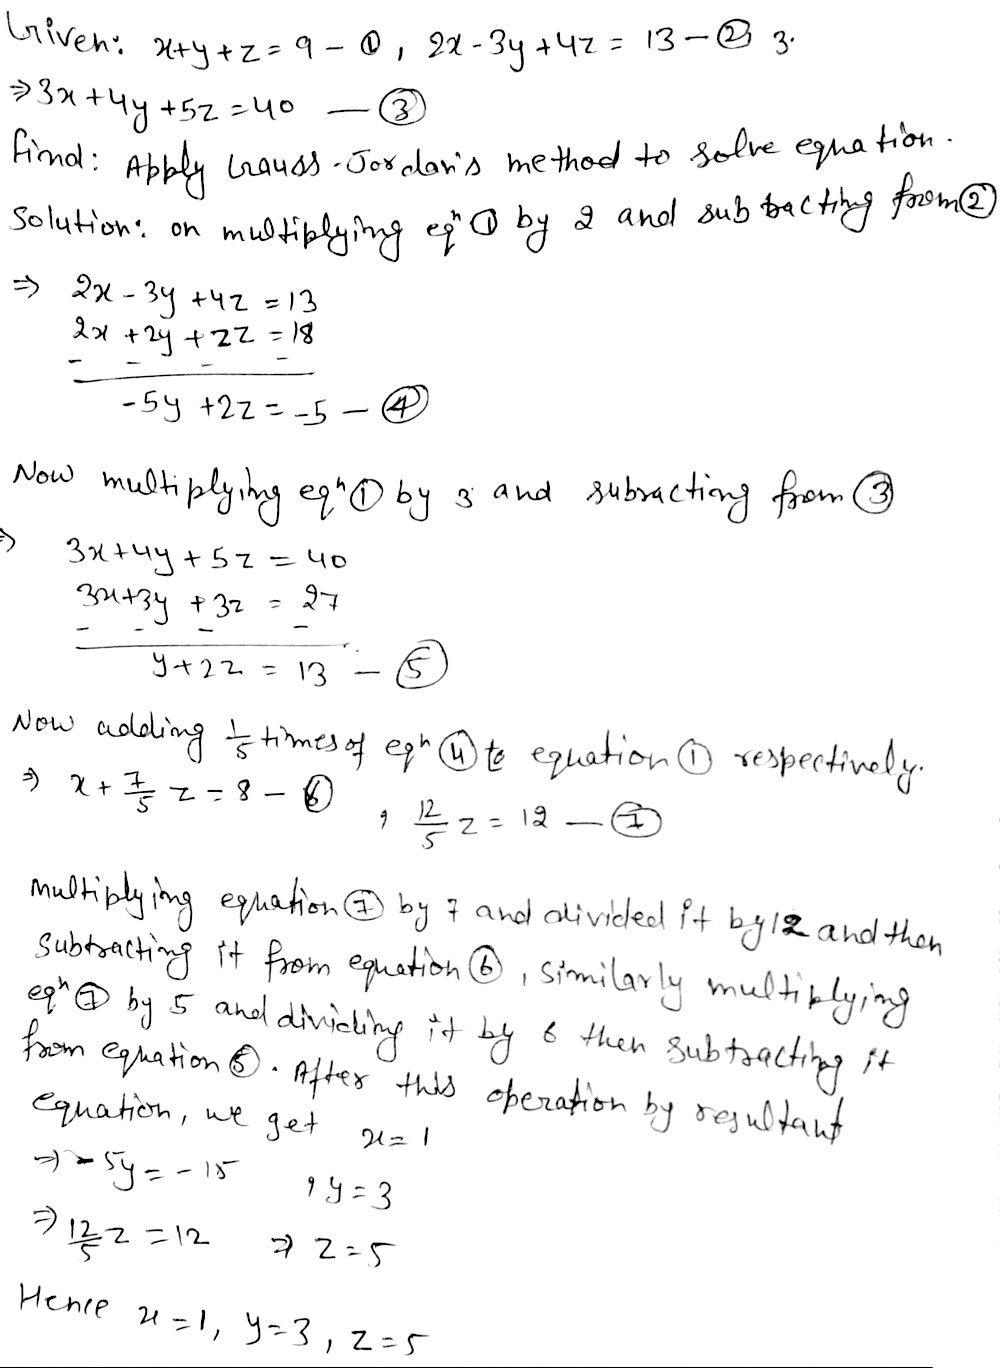 Given: x+y+z=9 - ①, 2x-3y+4z = 13 - ② 3.
⇒3x+4y+5z=40 — ③
find: Apply Gauss-Jordan's method to solve equation.
Solution: on multiplying eqⁿ ① by 2 and subtracting from ②
⇒ 2x-3y+4z=13
2x+2y+2z=18
- - - -
-5y+2z=-5 - ④
Now multiplying eqⁿ ① by 3 and subracting from ③
⇒ 3x+4y+5z=40
3x+3y+3z=27
- - - -
y+2z=13 - ⑤
Now adding 1/5 times of eqⁿ ④ to equation ① respectively.
⇒ x+7/5 z=8 - ⑥ , 12/5 z=12 — ⑦
Multiplying equation ⑦ by 7 and divided it by 12 and then
Subtracting it from equation ⑥, Similarly multiplying
eqⁿ ⑦ by 5 and dividing it by 6 then subtracting it
from equation ⑤. After this operation by resultant
equation, we get x=1
⇒ -5y=-15 , y=3
⇒ 12/5 z=12 ⇒ z=5
Hence x=1, y=3, z=5